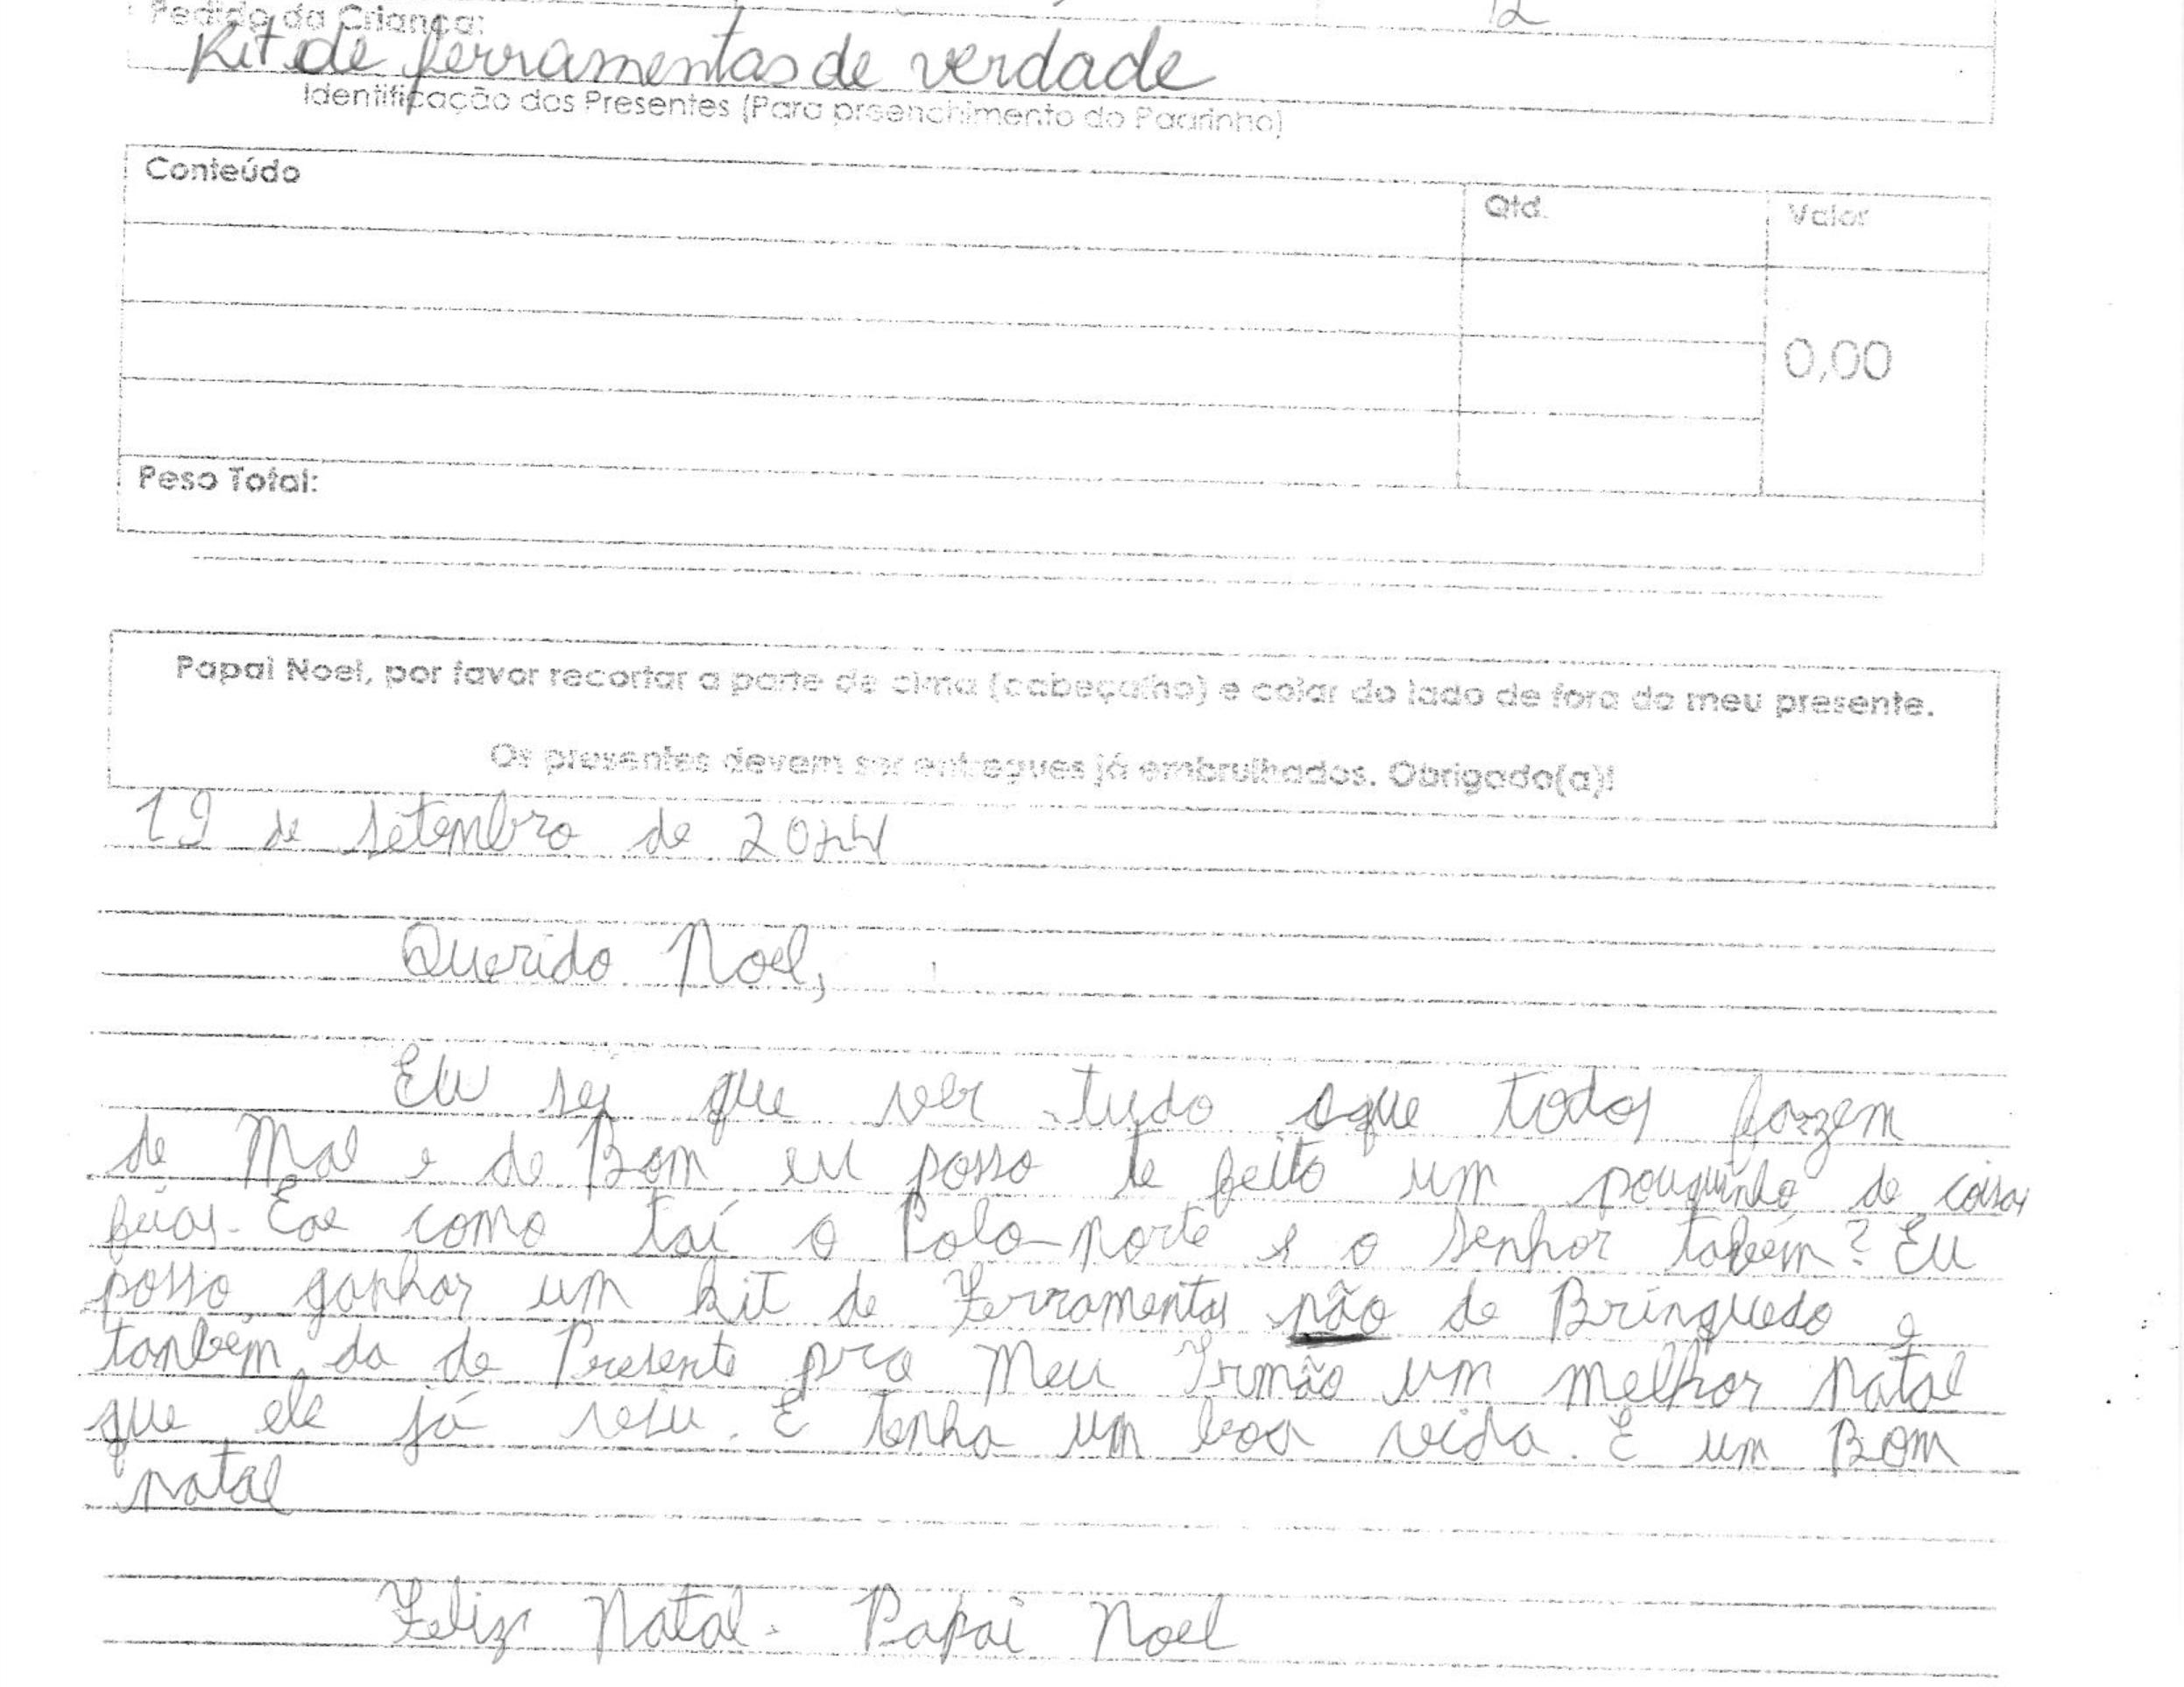 Pedido da Criança:
12
Kit de ferramentas de verdade
Identificação dos Presentes (Para preenchimento do Padrinho)
Conteúdo
Qtd.
Valor
0,00
Peso Total:
Papai Noel, por favor recortar a parte de cima (cabeçalho) e colar do lado de fora do meu presente.
Os presentes devem ser entregues já embrulhados. Obrigado(a)!
19 de setembro de
Querido Noel,
Eu sei que ver tudo oque todos fazem
de Mal e de Bom eu posso te feito um pouquinho de coisas
feias. Eae como taí o Polo-norte e o senhor tabém? Eu
posso ganhar um kit de Ferramentas não de Brinquedo e
tanbém da de Presente pra Meu Irmão um melhor natal
que ele já veiu. E tenha um boa vida. E um Bom
natal
Feliz Natal. Papai Noel